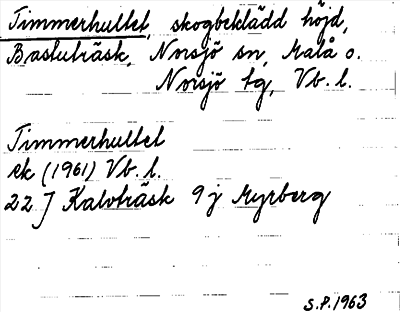 Timmerhultet, skogbeklädd höjd,
Bastuträsk, Norsjö sn, Malå o.
Norsjö tg, Vb. l.
Timmerhultet
ek (1961) Vb. l.
22 J Kalvträsk 9 j Myrberg
S.P. 1963